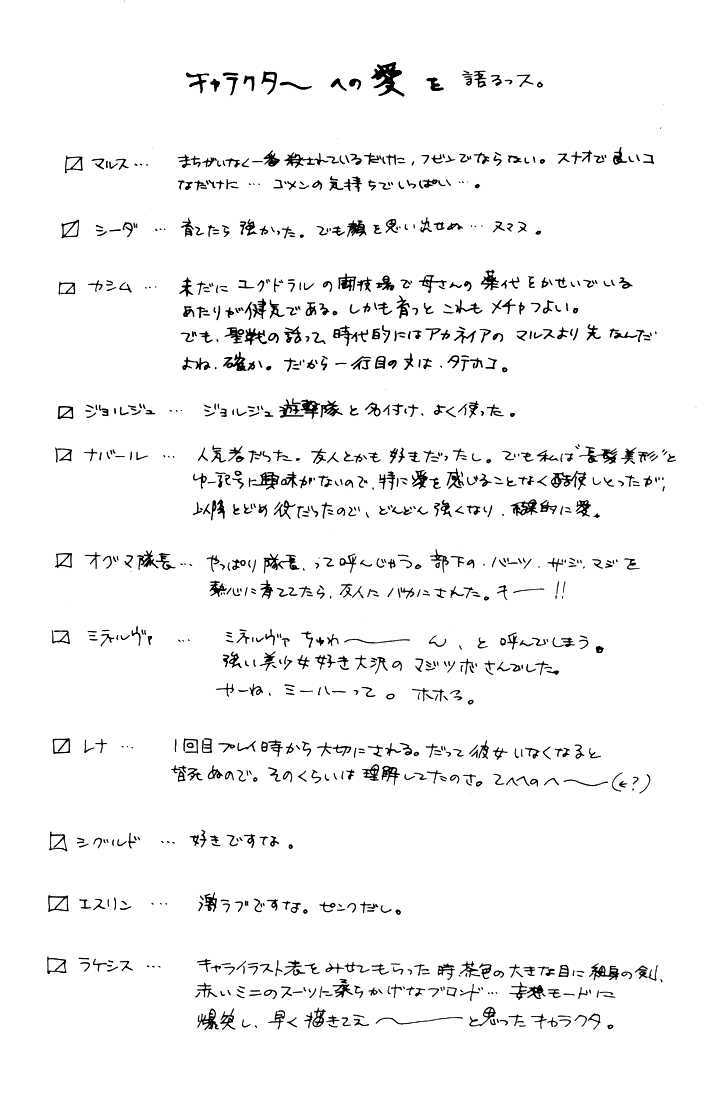 キャラクターへの愛を語るっス。
マルス… まちがいなく一番殺されているだけに、フビンでならない。スナオで良いコ
なだけに…ゴメンの気持ちでいっぱい…。
シーダ … 育てたら強かった。でも顔を思い出せぬ…ヌマヌ。
カシム … 未だにユグドラルの闘技場で母さんの薬代をかせいでいる
あたりが健気である。しかも育つとこれもメチャつよい。
でも、聖戦の話って、時代的にはアカネイアのマルスより先なんだ
よね、確か。だから一行目の文は、タテホコ。
ジョルジュ … ジョルジュ遊撃隊と名付け、よく使った。
ナバール … 人気者だった。友人とかも好きだったし。でも私は“長髪美形”と
ゆー記号に興味がないので、特に愛を感じることなく酷使しとったが、
以降とどめ役だったので、どんどん強くなり、結果的に愛。
オグマ隊長… やっぱり隊長、って呼んじゃう。部下の・バーツ・サジ・マジを
熱心に育ててたら、友人にバカにされた。キー!!
ミネルヴァ … ミネルヴァちゅわ〜〜ん、と呼んでしまう。
強い美少女好き大沢のマジツボさんでした。
やーね、ミーハーって。ホホろ。
レナ … 1回目プレイ時から大切にされる。だって彼女いなくなると
皆死ぬので。そのくらいは理解してたのさ。てへへのへ〜〜(←?)
シグルド … 好きですな。
エスリン … 激ラブですな。ピンクだし。
ラケシス … キャライラスト表をみせてもらった時、茶色の大きな目に細身の剣、
赤いミニのスーツに柔らかげなブロンド…妄想モードに
爆発し、早く描きてえ〜〜と思ったキャラクタ。